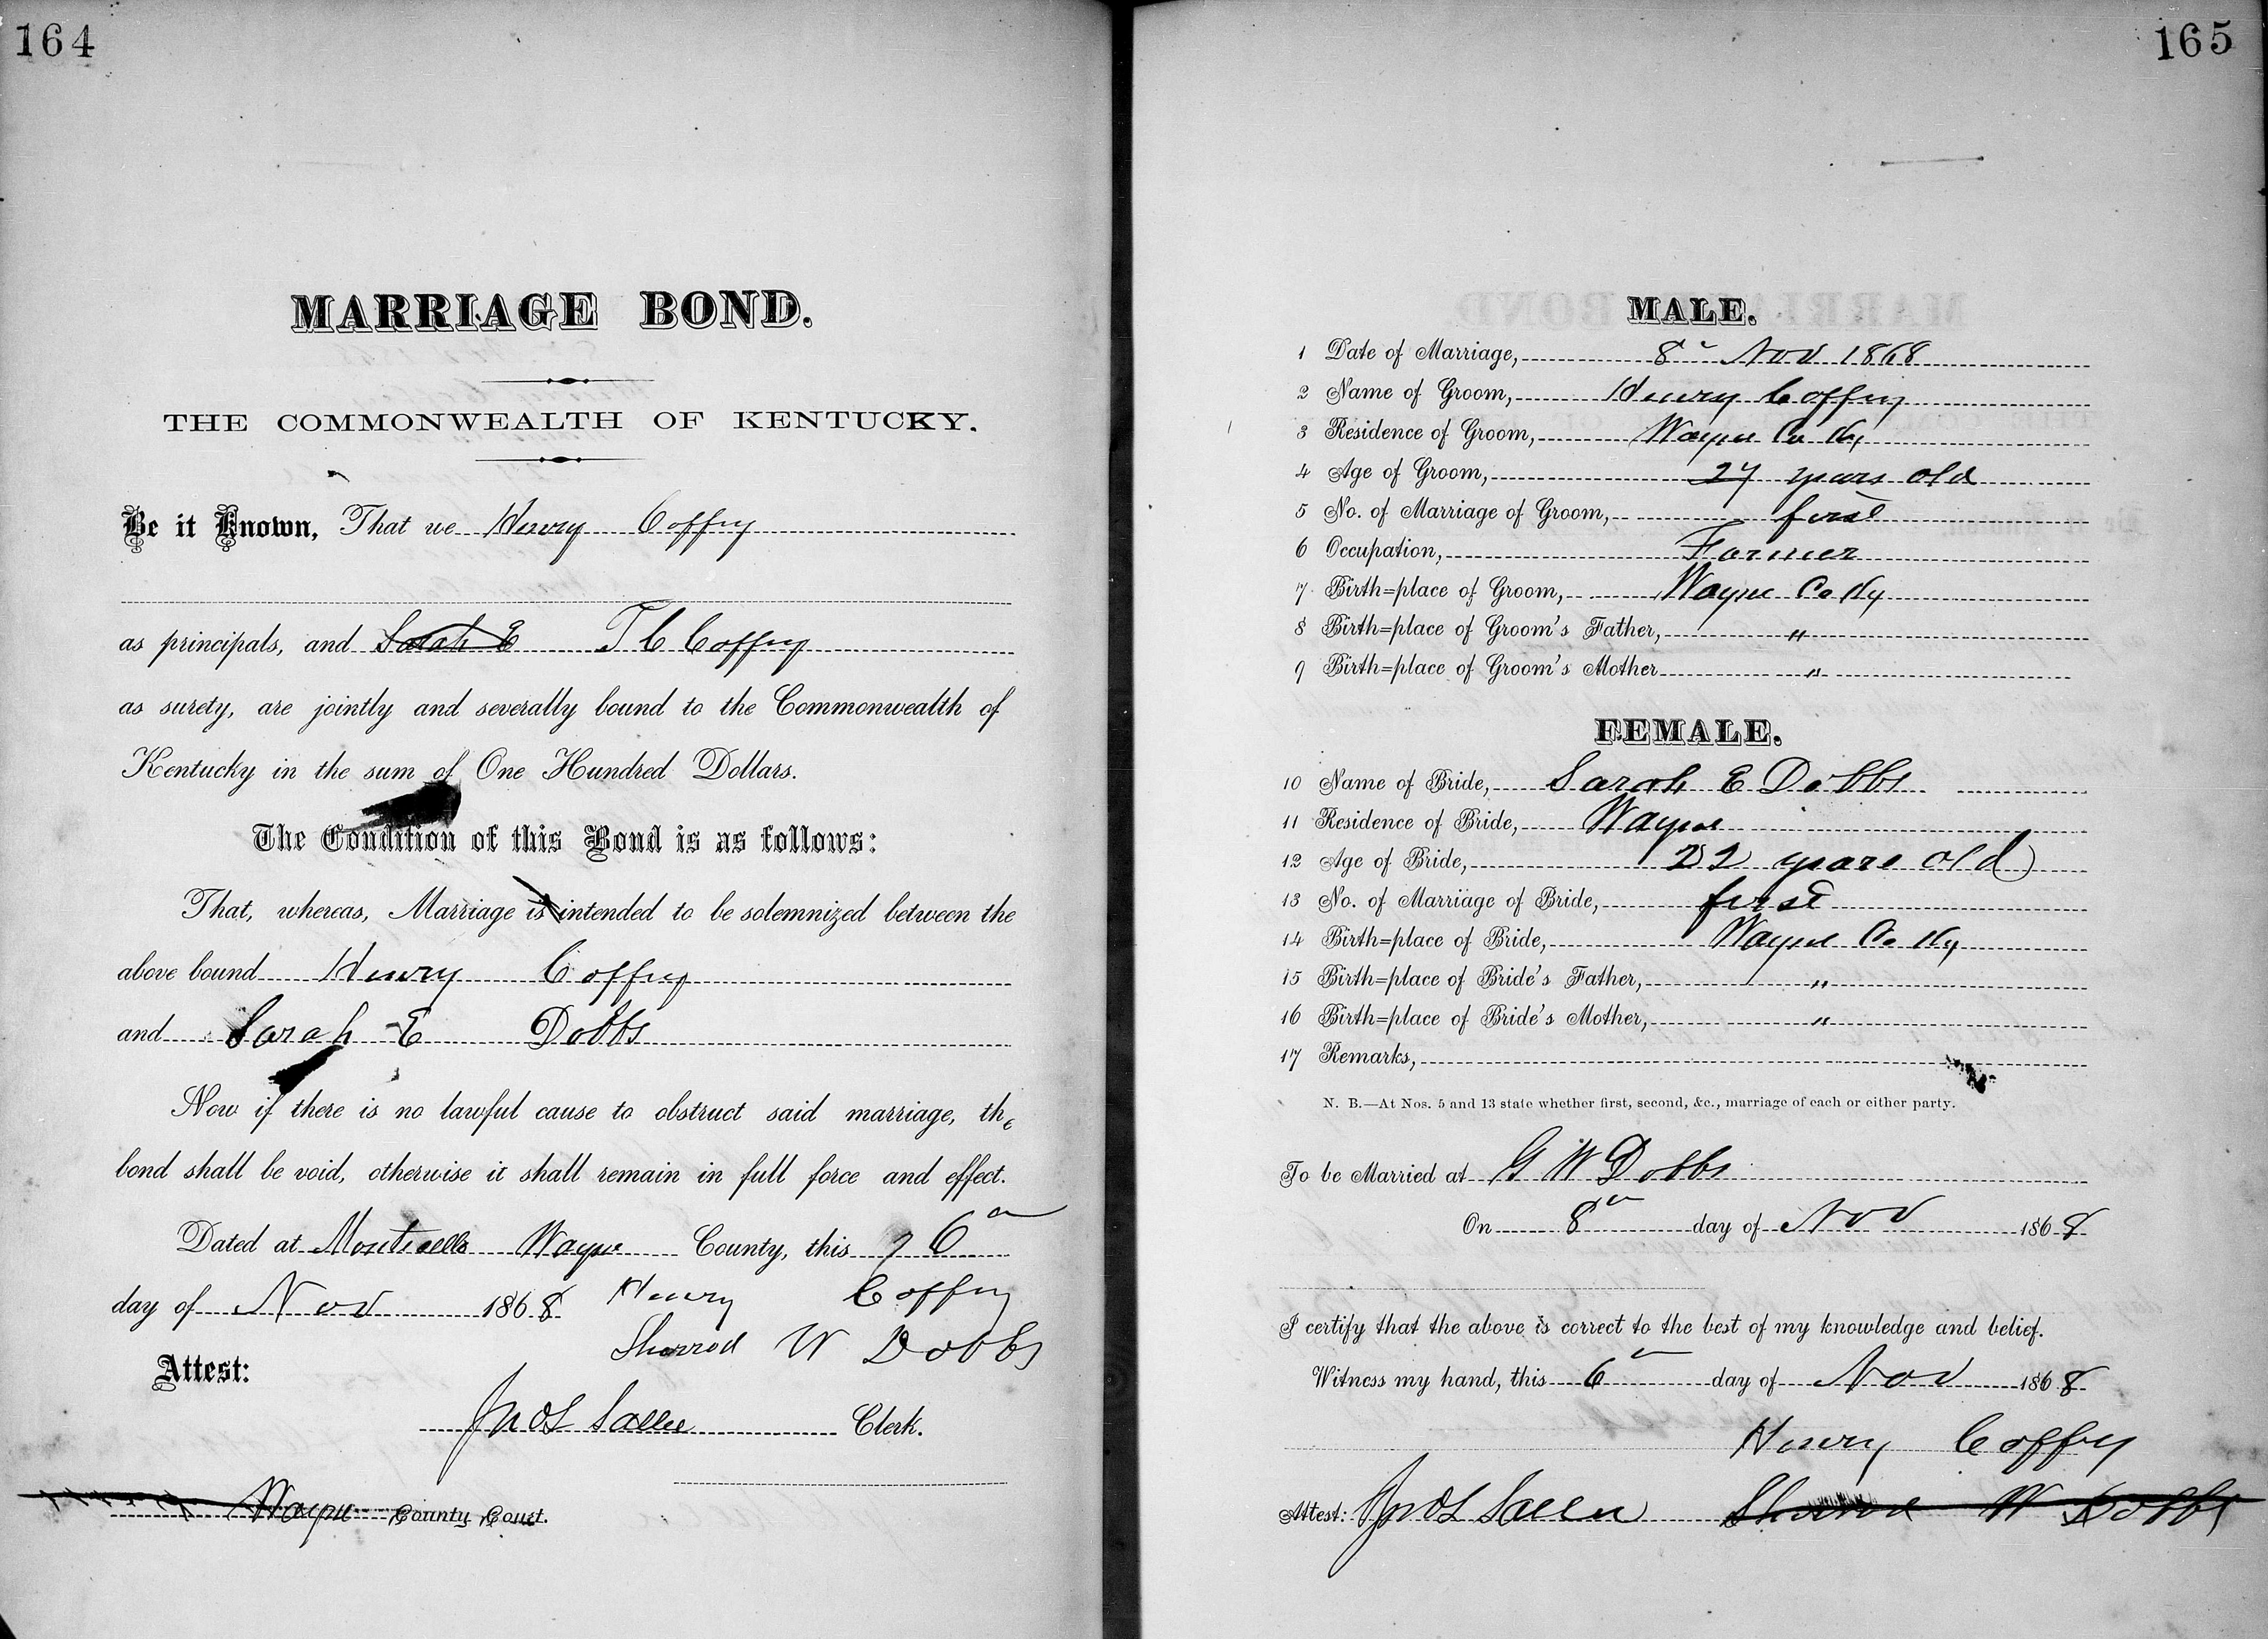 164
MARRIAGE BOND.
THE COMMONWEALTH OF KENTUCKY.
Be it Known, That we Henry Coffey
as principals, and Sarah E T C Coffey
as surety, are jointly and severally bound to the Commonwealth of
Kentucky in the sum of One Hundred Dollars.
The Condition of this Bond is as follows:
That, whereas, Marriage is intended to be solemnized between the
above bound Henry Coffey
and Sarah E Dobbs
Now if there is no lawful cause to obstruct said marriage, the
bond shall be void, otherwise it shall remain in full force and effect.
Dated at Monticello Wayne County, this 6
day of Nov 1868 Henry Coffey
Sherrod W Dobbs
Attest:
Jno S Sallee Clerk.
Wayne County Court.
165
MALE.
1 Date of Marriage, 8 Nov 1868
2 Name of Groom, Henry Coffey
3 Residence of Groom, Wayne Co Ky
4 Age of Groom, 27 years old
5 No. of Marriage of Groom, first
6 Occupation, Farmer
7 Birth=place of Groom, Wayne Co Ky
8 Birth=place of Groom's Father, "
9 Birth=place of Groom's Mother "
FEMALE.
10 Name of Bride, Sarah E Dobbs
11 Residence of Bride, Wayne
12 Age of Bride, 22 years old
13 No. of Marriage of Bride, first
14 Birth=place of Bride, Wayne Co Ky
15 Birth=place of Bride's Father, "
16 Birth=place of Bride's Mother, "
17 Remarks,
N. B.—At Nos. 5 and 13 state whether first, second, &c., marriage of each or either party.
To be Married at G W Dobbs
On 8th day of Nov 1868
I certify that the above is correct to the best of my knowledge and belief.
Witness my hand, this 6 day of Nov 1868
Henry Coffey
Attest: Jno S Sallee Sherrod W Dobbs